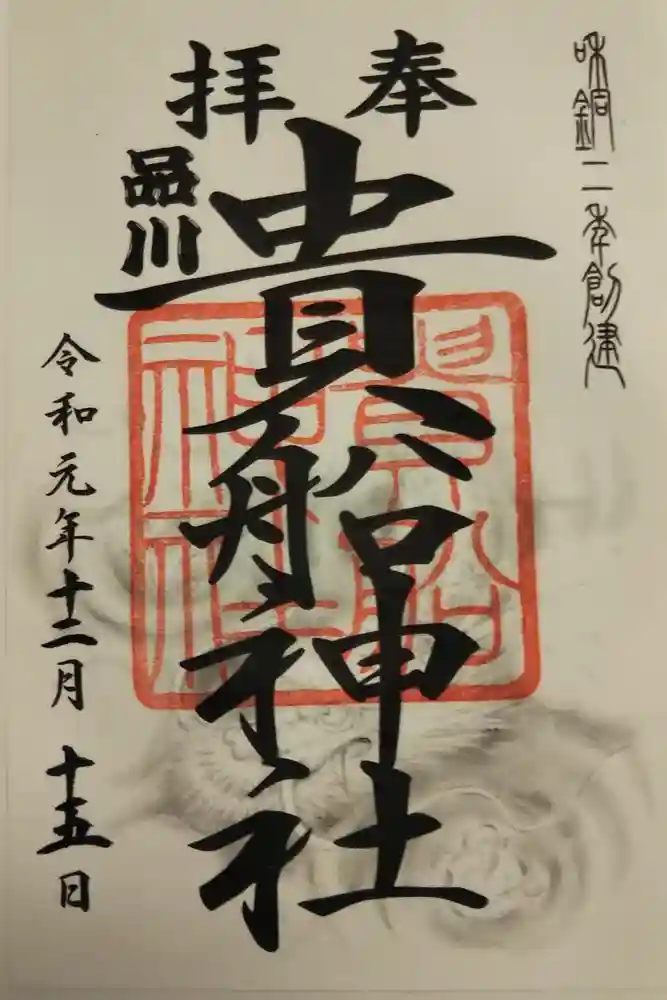 和銅二年創建
奉拝
品川
貴船神社
貴船
神社
令和元年十二月十五日